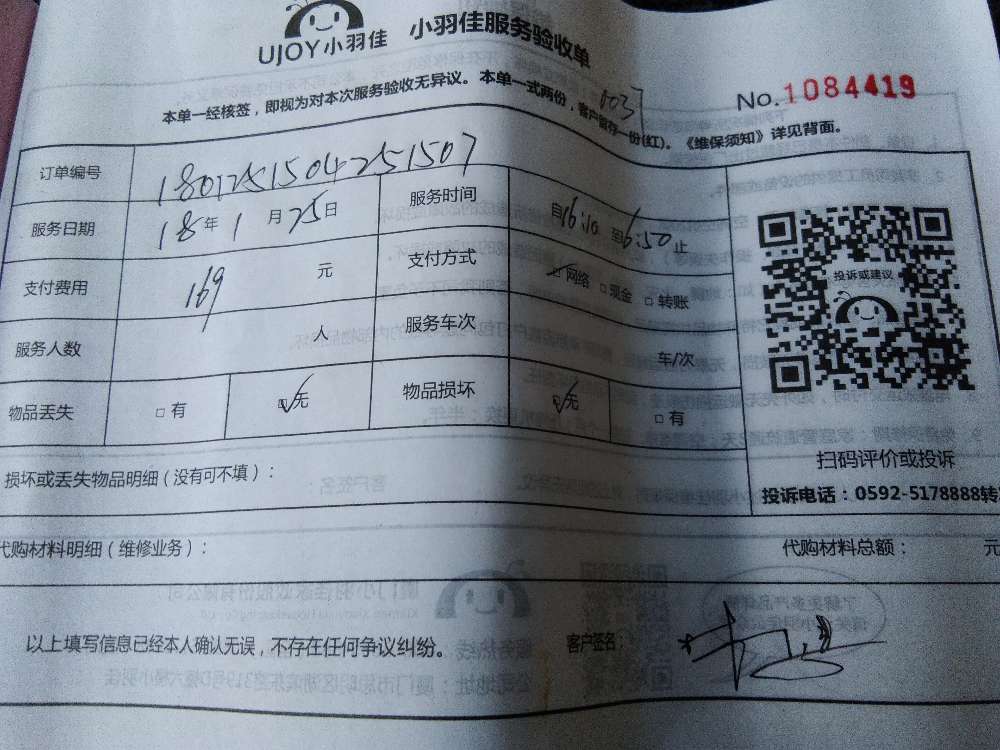 UJOY小羽佳 小羽佳服务验收单
No.1084419
本单一经核签，即视为对本次服务验收无异议。本单一式两份，客户留存一份(红)。《维保须知》详见背面。
003
订单编号 1801251504251507
服务日期 18年1月25日 服务时间 自16:10至6:50止
支付费用 169元 支付方式 ☑网络 □现金 □转账
服务人数 人 服务车次 车/次
物品丢失 □有 ☑无 物品损坏 ☑无 □有
投诉或建议
扫码评价或投诉
投诉电话：0592-5178888转
损坏或丢失物品明细（没有可不填）：
代购材料明细（维修业务）： 代购材料总额： 元
以上填写信息已经本人确认无误，不存在任何争议纠纷。 客户签名：